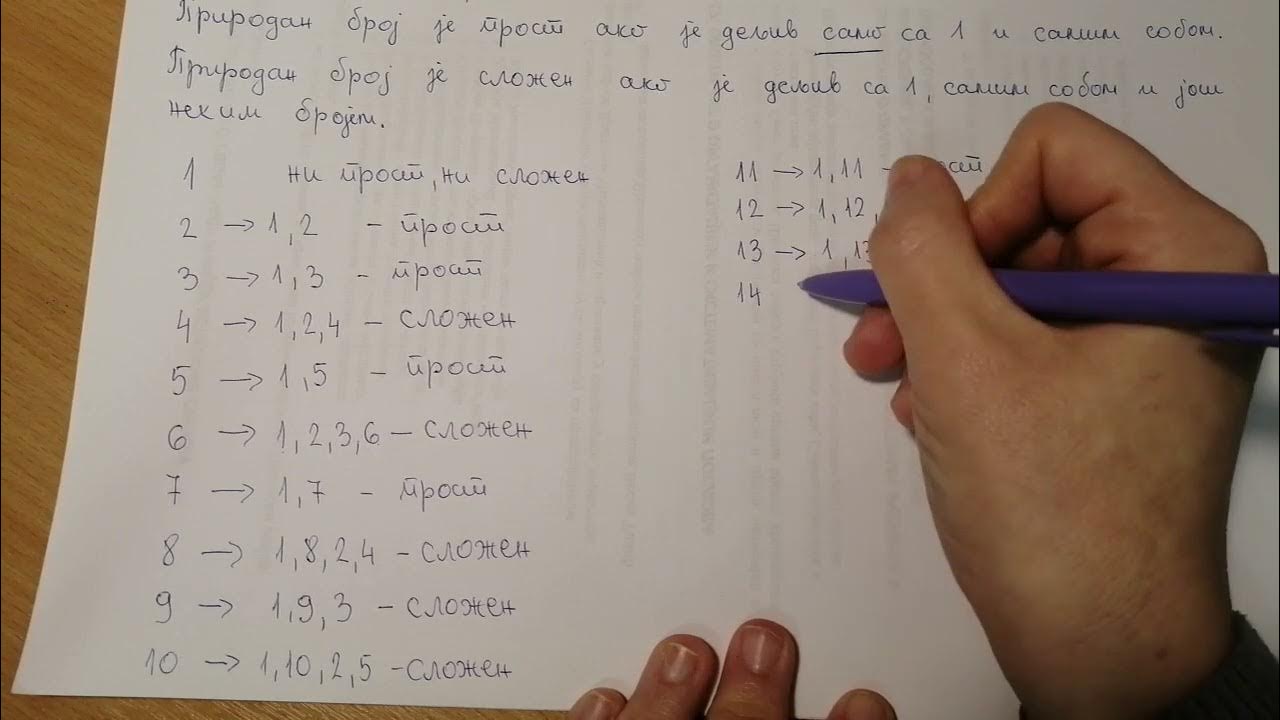 Природан број је прост ако је дељив само са 1 и самим собом.
Природан број је сложен ако је дељив са 1, самим собом и још
неким бројем.
1 ни прост, ни сложен
2 → 1, 2 – прост
3 → 1, 3 – прост
4 → 1, 2, 4 – сложен
5 → 1, 5 – прост
6 → 1, 2, 3, 6 – сложен
7 → 1, 7 – прост
8 → 1, 8, 2, 4 – сложен
9 → 1, 9, 3 – сложен
10 → 1, 10, 2, 5 – сложен
11 → 1, 11 –
12 → 1, 12,
13 → 1, 13
14